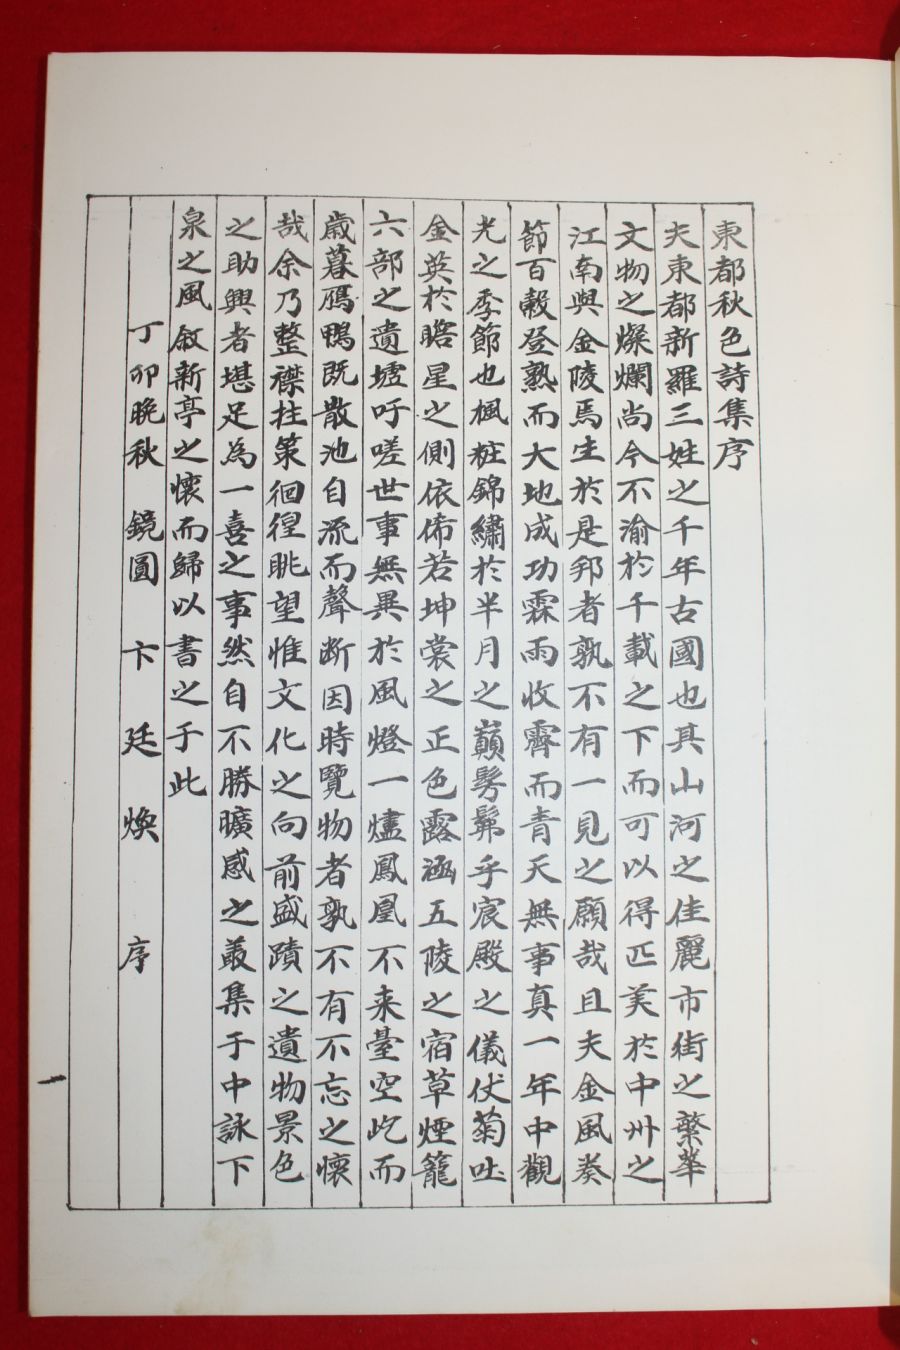 東都秋色詩集序
夫東都新羅三姓之千年古國也其山河之佳麗市街之繁華
文物之燦爛尚今不渝於千載之下而可以得匹美於中州之
江南與金陵焉生於是邦者孰不有一見之願哉且夫金風奏
節百穀登熟而大地成功霖雨收霽而青天無事真一年中觀
光之季節也楓粧錦繡於半月之巔髣髴乎宸殿之儀仗菊吐
金英於瞻星之側依俙若坤裳之正色露涵五陵之宿草煙籠
六部之遺墟吁嗟世事無異於風燈一燼鳳凰不来臺空屹而
歲暮鴈鴨既散池自流而聲断因時覽物者孰不有不忘之懷
哉余乃整襟拄策徊徨眺望惟文化之向前盛蹟之遺物景色
之助興者堪足為一喜之事然自不勝曠感之叢集于中詠下
泉之風叙新亭之懷而歸以書之于此
丁卯晩秋 鏡圓 卞廷煥 序
一